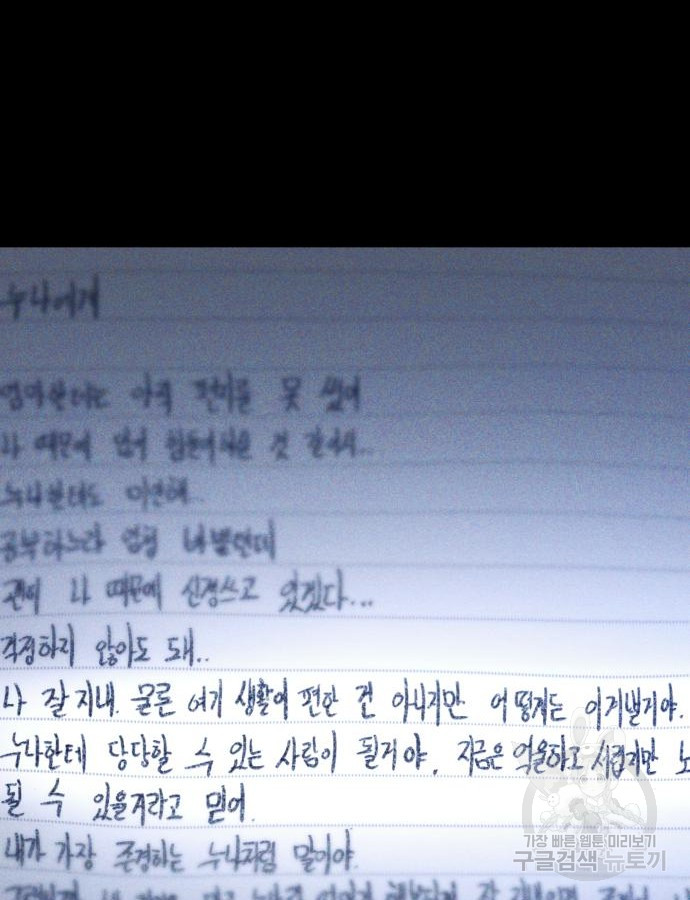 누나에게
엄마한테는 아직 편지를 못 썼어
나 때문에 엄청 힘들어하실 것 같아서...
누나한테도 미안해..
공부하느라 엄청 바쁠텐데
괜히 나 때문에 신경쓰고 있겠다...
걱정하지 않아도 돼..
나 잘 지내. 물론 여기 생활이 편한 건 아니지만 어떻게든 이겨낼거야.
누나한테 당당할 수 있는 사람이 될거야. 지금은 억울하고 서럽지만
될 수 있을거라고 믿어.
내가 가장 존경하는 누나처럼 말이야.
가장 빠른 웹툰 미리보기
구글검색 뉴토끼